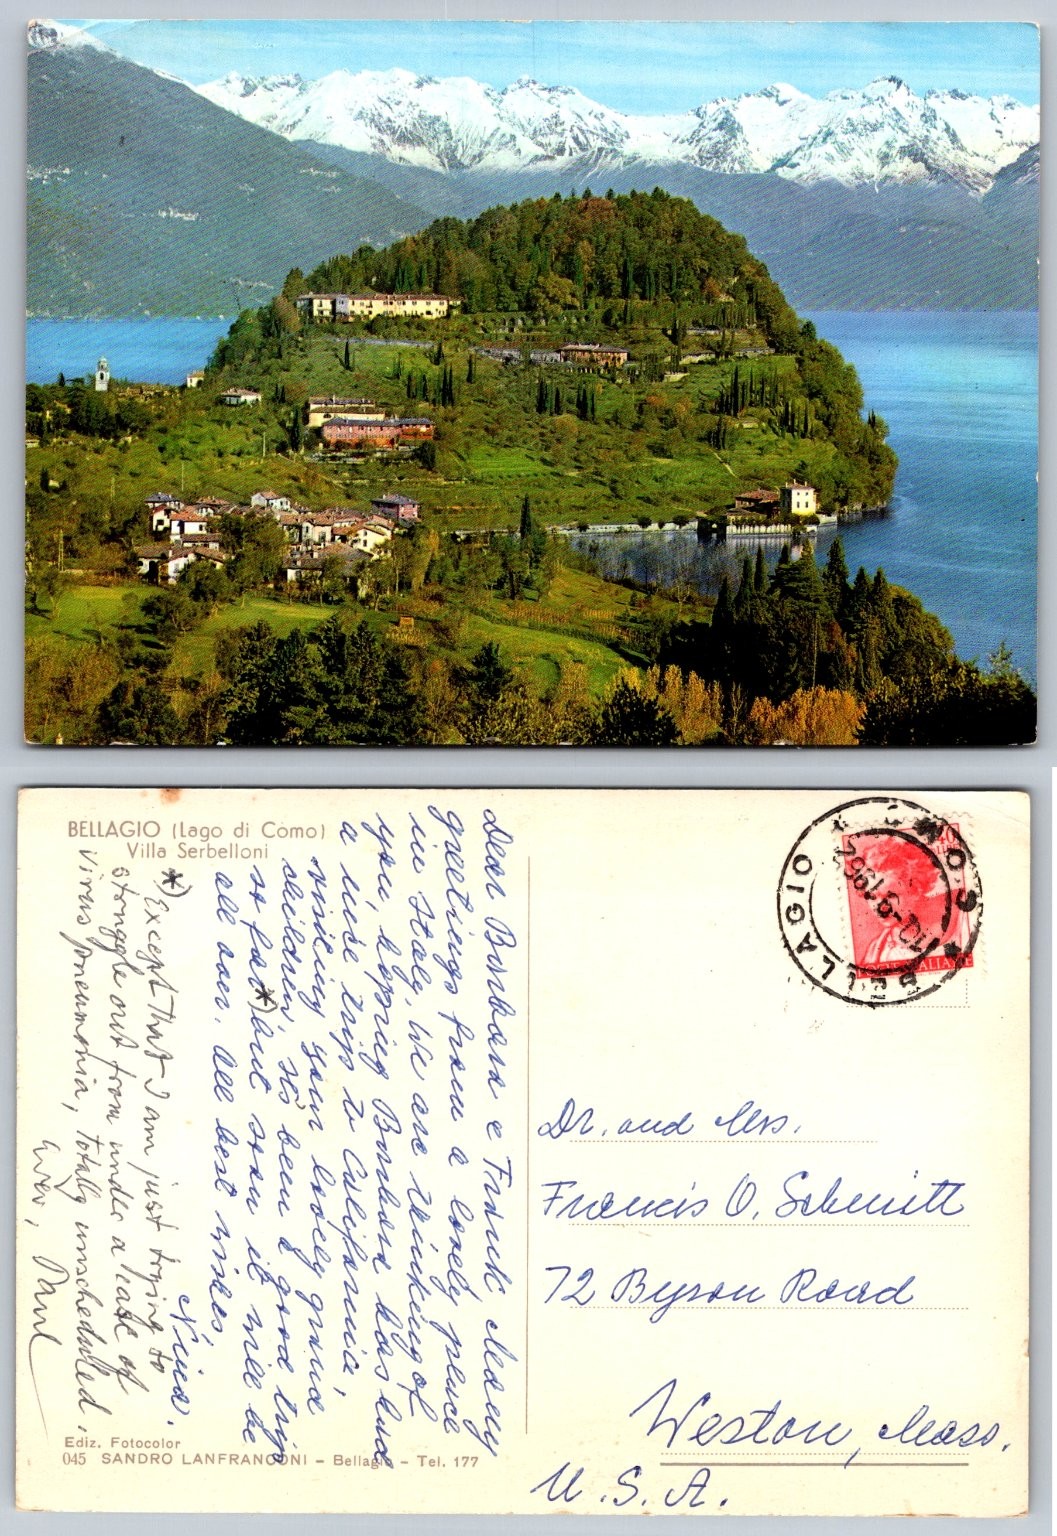 BELLAGIO (Lago di Como)
Villa Serbelloni
Dear Barbara e Frank, Many
greetings from a lovely place
in Italy. We are thinking of
you, hoping Barbara has had
a nice trip to California,
visiting your lovely grand
children. It's been a good trip
so far *) but soon it will be
all over. All best wishes
Nina.
*) Except that I am just trying to
struggle out from under a case of
virus pneumonia, totally unscheduled.
Ever, Paul
Ediz. Fotocolor
045 SANDRO LANFRANCONI - Bellagio - Tel. 177
BELLAGIO
COMO
10-9-196
POSTE ITALIANE
Dr. and Mrs.
Francis O. Schmitt
72 Byron Road
Weston, Mass.
U.S.A.